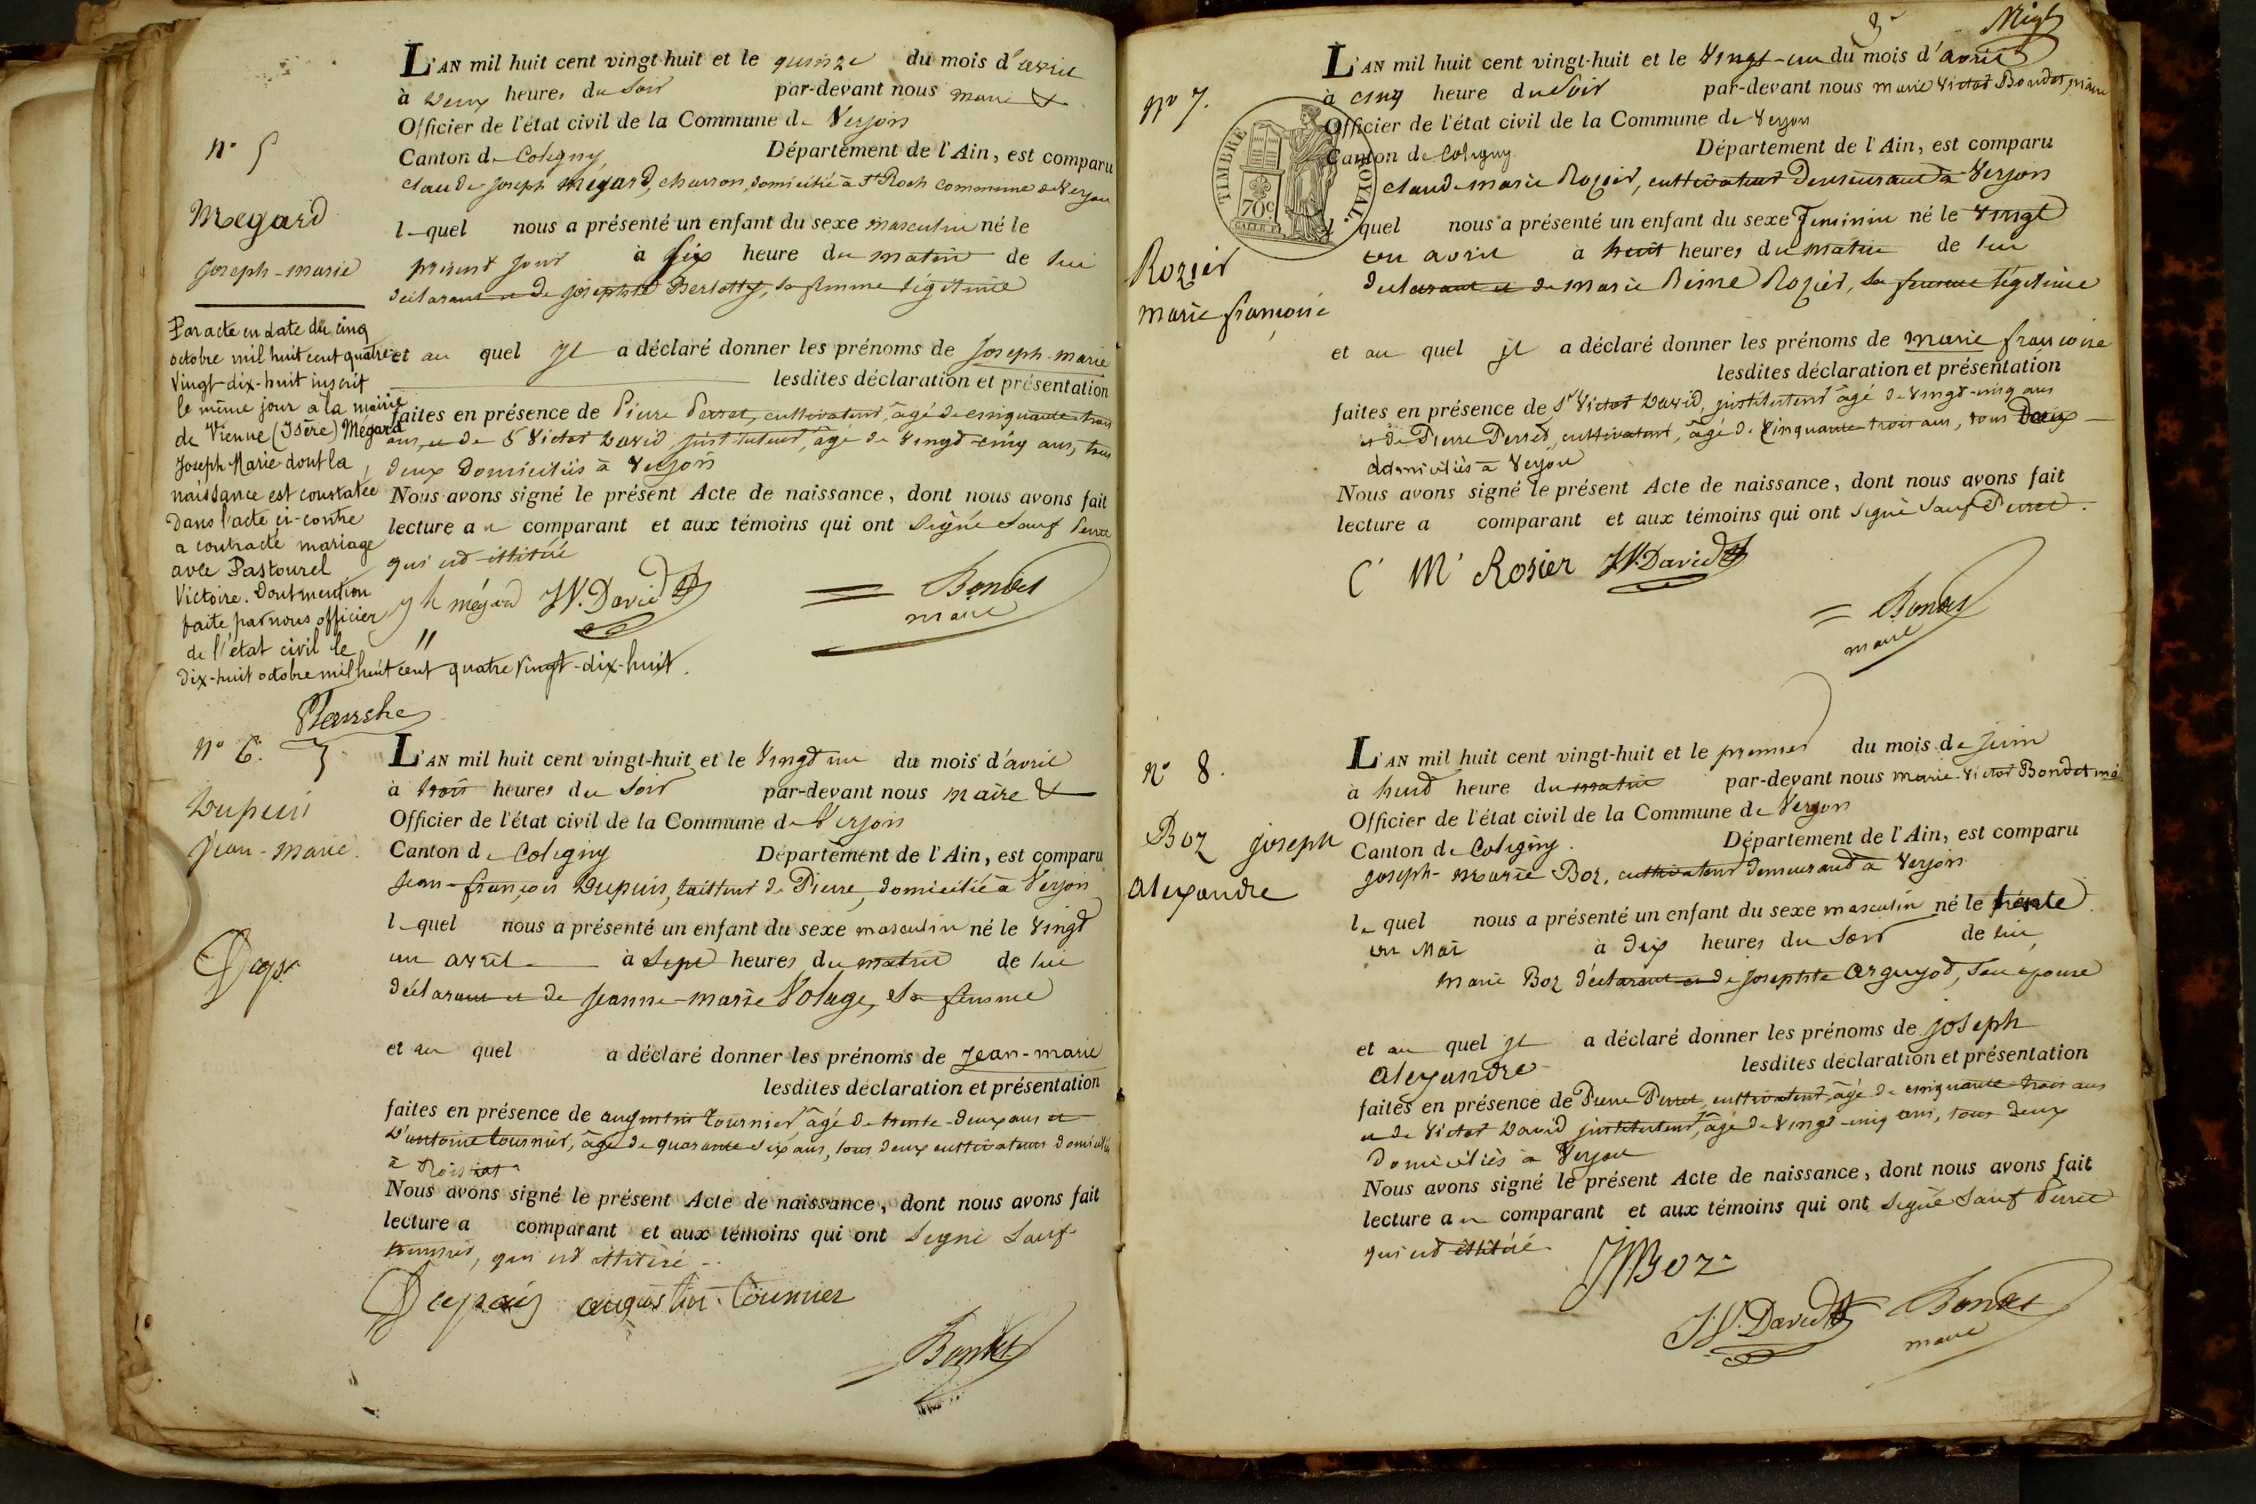 N° 5
Megard
joseph-marie
Par acte en date du cinq
octobre mil huit cent quatre
vingt-dix-huit inscrit
le même jour à la mairie
de Vienne (Isère) Mégard
Joseph Marie dont la
naissance est constatée
dans l'acte ci-contre
a contracté mariage
avec Pastourel
Victoire. Dont mention
faite par nous officier
de l'état civil le
dix-huit octobre mil huit cent quatre vingt-dix-huit.
L'AN mil huit cent vingt-huit et le quinze du mois d'avril
à deux heures du soir par-devant nous maire &
Officier de l'état civil de la Commune de Verjon
Canton de Coligny Département de l'Ain, est comparu
claude joseph mégard, charron, domicilié à St Roch commune de Verjon
lequel nous a présenté un enfant du sexe masculin né le
présent jour à six heure du matin de lui
déclarant et de josephte Berlotty, sa femme légitime
et au quel il a déclaré donner les prénoms de joseph-marie
lesdites déclaration et présentation
faites en présence de Pierre Perret, cultivateur, âgé de cinquante-trois
ans, et de Sr Victor David, instituteur, âgé de vingt-cinq ans, tous
deux domiciliés à Verjon
Nous avons signé le présent Acte de naissance, dont nous avons fait
lecture au comparant et aux témoins qui ont signé sauf Perret
qui est illitéré
mégard JV. David Bondet
maire
N° 6.
Dupuis
jean-marie.
L'AN mil huit cent vingt-huit et le vingt un du mois d'avril
à trois heures du soir par-devant nous maire &
Officier de l'état civil de la Commune de Verjon
Canton de Coligny Département de l'Ain, est comparu
jean-françois Dupuis, tailleur de Pierre, domicilié à Verjon
lequel nous a présenté un enfant du sexe masculin né le vingt
un avril à sept heures du matin de lui
déclarant et de jeanne-marie Volage, sa femme
et au quel a déclaré donner les prénoms de jean-marie
lesdites déclaration et présentation
faites en présence de augustin tournier, âgé de trente-deux ans et
d'antoine tournier, âgé de quarante six ans, tous deux cultivateurs domiciliés
à
Nous avons signé le présent Acte de naissance, dont nous avons fait
lecture a comparant et aux témoins qui ont signé sauf
tournier, qui est illitéré
Dupuis augustin tournier
Bondet
N° 7.
Rozier
marie françoise
TIMBRE ROYAL
70c
L'AN mil huit cent vingt-huit et le vingt-un du mois d'avril
à cinq heure du soir par-devant nous marie victor Bondet, maire
Officier de l'état civil de la Commune de Verjon
Canton de Coligny Département de l'Ain, est comparu
claude marie Rozier, cultivateur demeurant à Verjon
lquel nous a présenté un enfant du sexe feminin né le vingt
un avril à huit heures du matin de lui
déclarant et de marie Reine Rozier, sa femme légitime
et au quel il a déclaré donner les prénoms de marie françoise
lesdites déclaration et présentation
faites en présence de Sr Victor David, instituteur âgé de vingt-cinq ans
et de Pierre Perret, cultivateur, âgé de cinquante-trois ans, tous deux
domiciliés à Verjon
Nous avons signé le présent Acte de naissance, dont nous avons fait
lecture a comparant et aux témoins qui ont signé sauf Perret.
C M Rosier JV. David
Bondet
maire
N° 8.
Boz joseph
alexandre
L'AN mil huit cent vingt-huit et le premier du mois de juin
à huit heure du matin par-devant nous marie-victor Bondet
Officier de l'état civil de la Commune de Verjon
Canton de Coligny. Département de l'Ain, est comparu
joseph-marie Boz, cultivateur demeurant à Verjon
lequel nous a présenté un enfant du sexe masculin né le trente
un mai à dix heures du soir de lui
marie Boz déclarant et de josephte arguyod, son épouse
et au quel il a déclaré donner les prénoms de joseph
alexandre lesdites déclaration et présentation
faites en présence de Pierre Perret, cultivateur, âgé de cinquante-trois ans
et de Victor David instituteur, âgé de vingt-cinq ans, tous deux
domiciliés à Verjon
Nous avons signé le présent Acte de naissance, dont nous avons fait
lecture au comparant et aux témoins qui ont signé sauf Perret
qui est illitéré
JMBoz
JV. David Bondet
maire